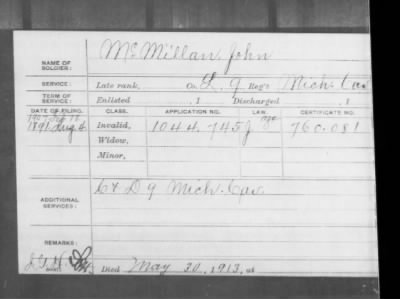 NAME OF SOLDIER: McMillan, John
SERVICE: Late rank, Co. L, 9 Reg't Mich. Cav
TERM OF SERVICE: Enlisted , 1 Discharged , 1
DATE OF FILING. CLASS. APPLICATION NO. LAW. CERTIFICATE NO.
1891 Aug 4 Invalid, 1044.745 760.081
Widow,
Minor,
ADDITIONAL SERVICES: C & D 9 Mich. Cav
REMARKS:
Died May 30, 1913, at